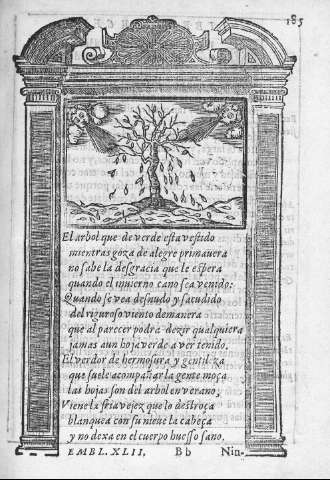 185
El arbol que de verde esta vestido
mientras goza de alegre primauera
no sabe la desgracia que le espera
quando el inuierno cano sea venido:
Quando se vea desnudo y sacudido
del riguroso viento demanera
que al parecer podra dezir qualquiera
jamas aun hoja verde a ver tenido.
El verdor de hermosura y gentileza
que suele acompañar la gente moça
las hojas son del arbol en verano,
Viene la fria vejez que lo destroça
blanquea con su nieue la cabeça
y no dexa en el cuerpo huesso sano.
EMBL. XLII, B b Nin-